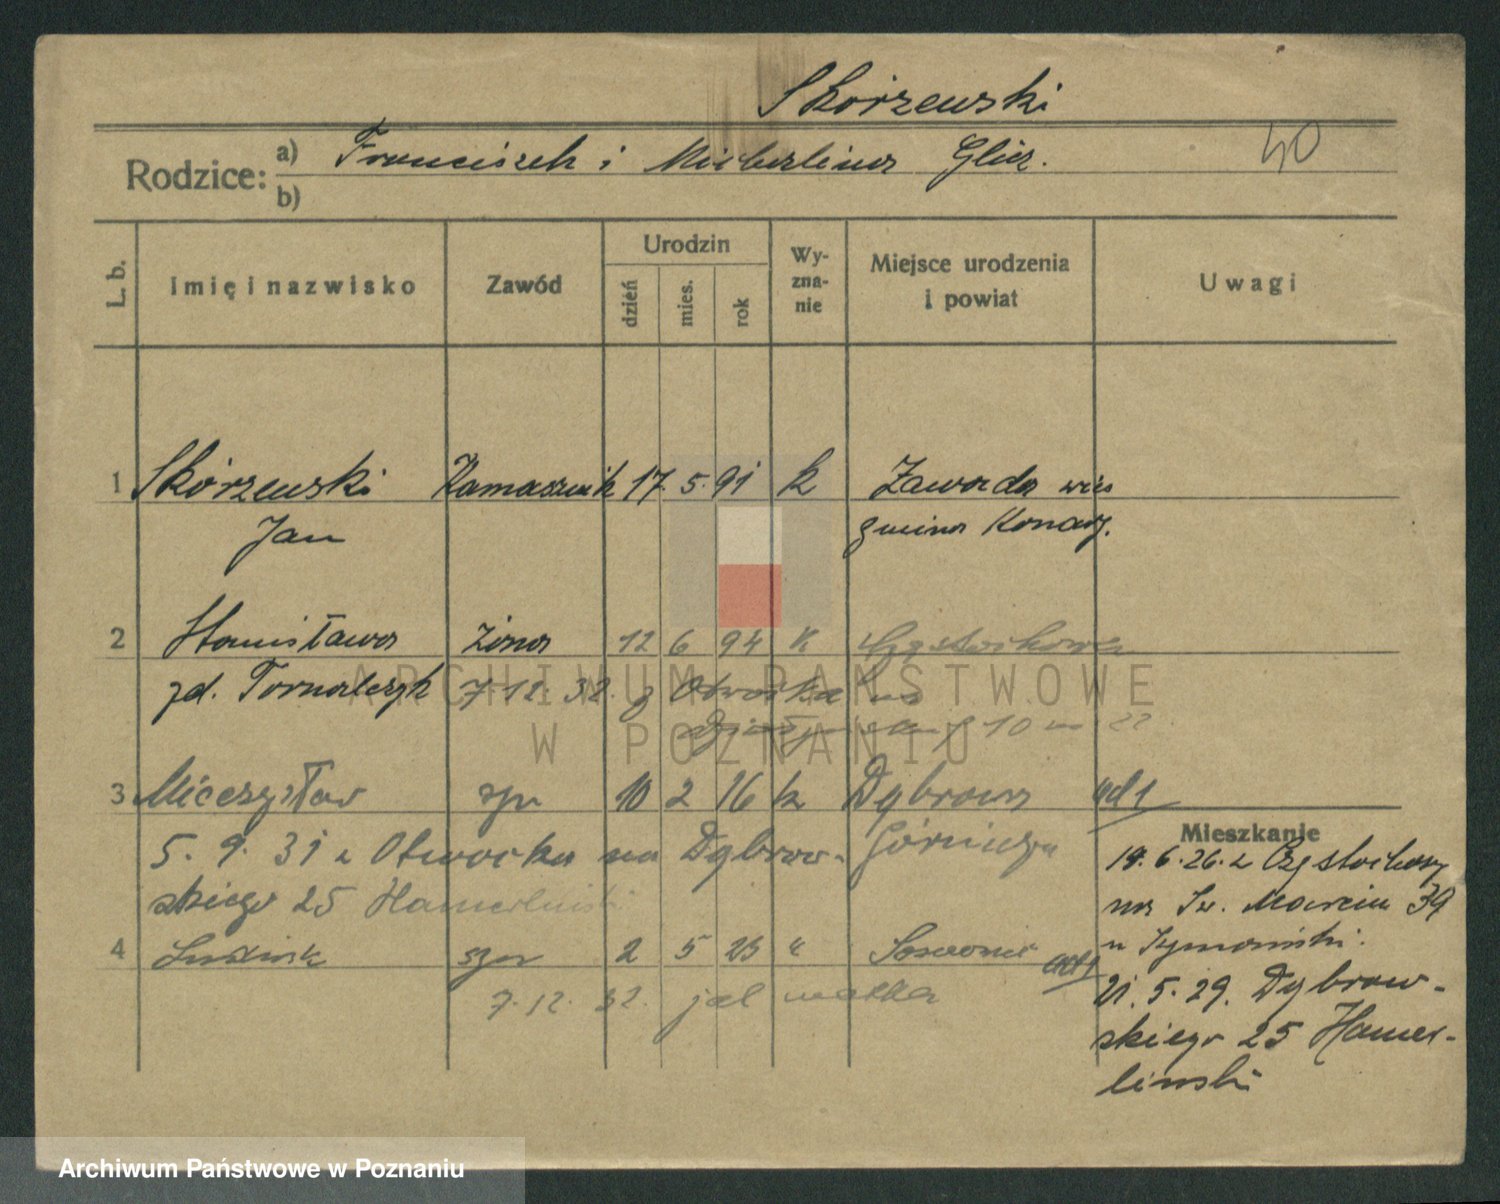 Skórzewski
40
Rodzice: a) Franciszek i Michalina Glier.
b)
L. b. Imię i nazwisko Zawód Urodzin dzień mies. rok Wyznanie Miejsce urodzenia i powiat Uwagi
1 Skórzewski Kamasznik 17. 5. 91 k Zawada wieś
Jan gmina Konary.
2 Stanisława żona 12 6 94 k Częstochowa
zd. Tornalczyk 7.12.32. z Otwocka na
10 m 22
3 Mieczysław syn 10 2 16 k Dąbrowa ad 1
Górnicza
5. 9. 31 z Otwocka na Dąbrow-
skiego 25 Hamerliński
4 2 5 25 " Sosnowiec ad 1
7.12.32. jak matka
Mieszkanie
18.6.26. z Częstochowy
na Św. Marcin 39
u Szymański.
21.5.29. Dąbrow-
skiego 25 Hamer-
liński
ARCHIWUM PAŃSTWOWE
W POZNANIU
Archiwum Państwowe w Poznaniu